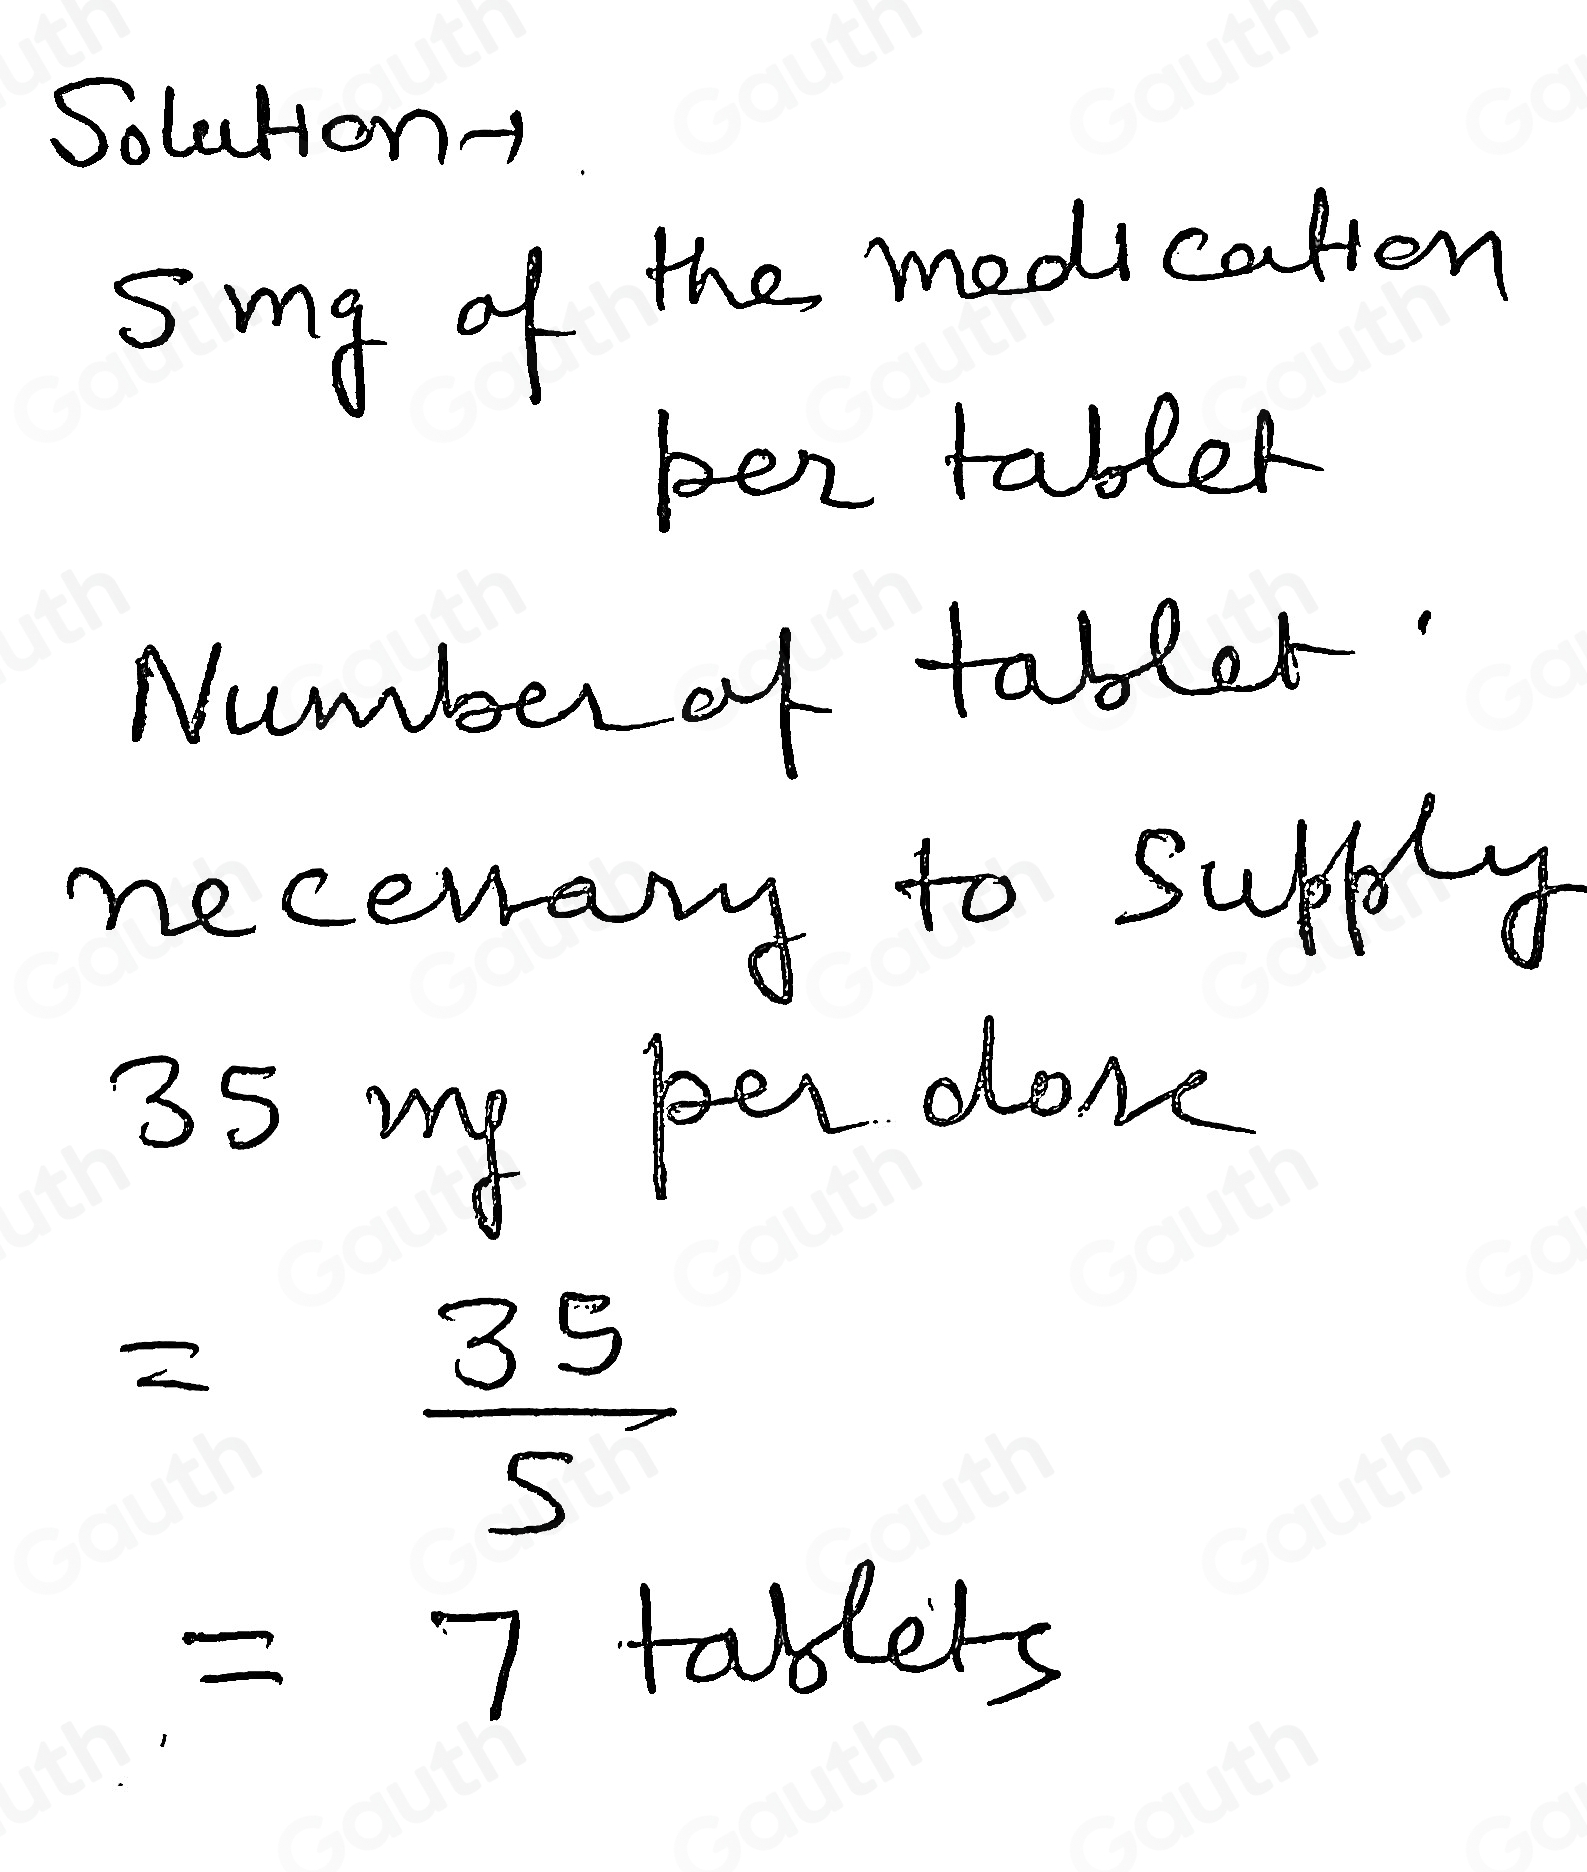 Solution →
5 mg of the medication
per tablet
Number of tablet
necessary to supply
35 mg per dose
= 35
5
= 7 tablets